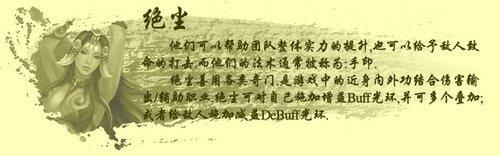 绝尘
他们可以帮助团队整体实力的提升,也可以给予敌人致
命的打击,而他们的法术通常被称为:手印.
绝尘善用各类奇门,是游戏中的近身内外功结合伤害输
出/辅助职业,绝尘可对自己施加增益Buff光环,并可多个叠加;
或者给敌人施加减益DeBuff光环.